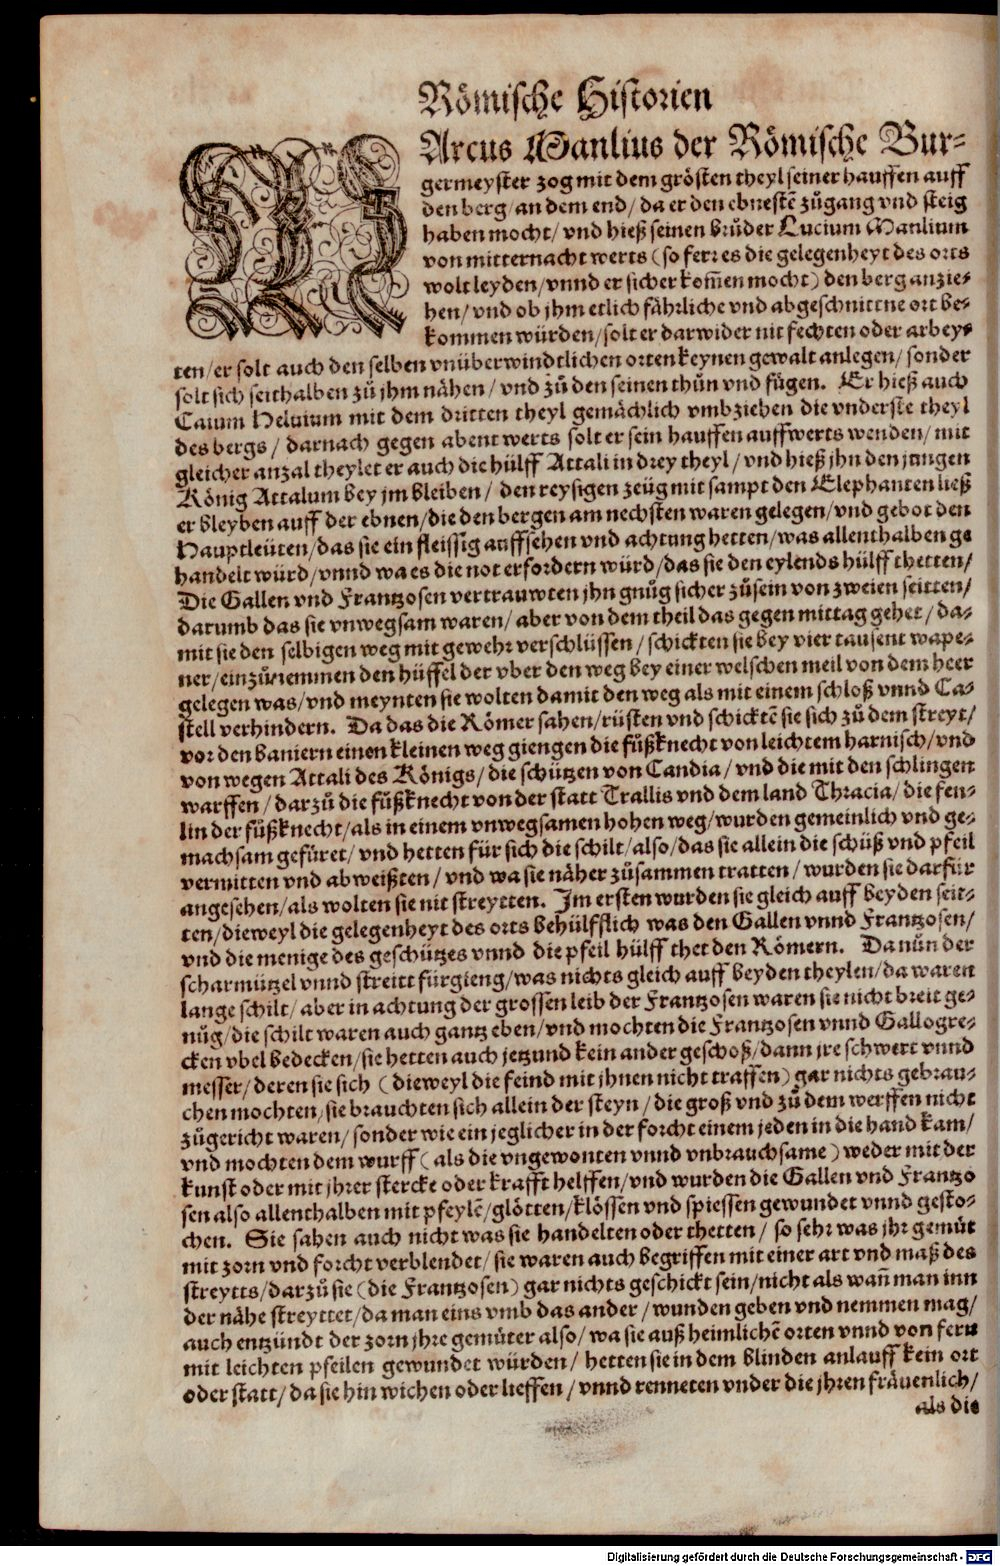 Römische Historien
MArcus Manlius der Römische Bur⸗
germeyster zog mit dem grösten theyl seiner hauffen auff
den berg/ an dem end/ da er den ebnestẽ zůgang vnd steig
haben mocht/ vnd hieß seinen brůder Lucium Manlium
von mitternacht werts (so ferr es die gelegenheyt des orts
wolt leyden/ vnnd er sicher kom̃en mocht) den berg anzie⸗
hen/ vnd ob jhm etlich fährliche vnd abgeschnittne ort be⸗
kommen würden/ solt er darwider nit fechten oder arbey⸗
ten/ er solt auch den selben vnüberwindtlichen orten keynen gewalt anlegen/ sonder
solt sich seithalben zů jhm nähen/ vnd zů den seinen thůn vnd fügen. Er hieß auch
Caium Heluium mit dem dritten theyl gemächlich vmbziehen die vnderste theyl
des bergs/ darnach gegen abent werts solt er sein hauffen auffwerts wenden/ mit
gleicher anzal theylet er auch die hülff Attali in drey theyl/ vnd hieß jhn den jungen
König Attalum bey jm bleiben/ den reysigen zeüg mit sampt den Elephanten ließ
er bleyben auff der ebnen/ die den bergen am nechsten waren gelegen/ vnd gebot den
Hauptleüten/ das sie ein fleissig auffsehen vnd achtung hetten/ was allenthalben ge
handelt würd/ vnnd wa es die not erfordern würd/ das sie den eylends hülff thetten/
Die Gallen vnd Frantzosen vertrauwten jhn gnůg sicher zůsein von zweien seitten/
darumb das sie vnwegsam waren/ aber von dem theil das gegen mittag gehet/ da⸗
mit sie den selbigen weg mit gewehr verschlüssen/ schickten sie bey vier tausent wape⸗
ner/ einzůnemmen den hüffel der vber den weg bey einer welschen meil von dem heer
gelegen was/ vnd meynten sie wolten damit den weg als mit einem schloß vnnd Ca⸗
stell verhindern. Da das die Römer sahen/ rüsten vnd schicktẽ sie sich zů dem streyt/
vor den baniern einen kleinen weg giengen die fůßknecht von leichtem harnisch/ vnd
von wegen Attali des Königs/ die schützen von Candia/ vnd die mit den schlingen
warffen/ darzů die fůßknecht von der statt Trallis vnd dem land Thracia/ die fen⸗
lin der fůßknecht/ als in einem vnwegsamen hohen weg/ wurden gemeinlich vnd ge⸗
machsam gefüret/ vnd hetten für sich die schilt/ also/ das sie allein die schüß vnd pfeil
vermitten vnd abweißten/ vnd wa sie näher zůsammen tratten/ wurden sie darfür
angesehen/ als wolten sie nit streytten. Im ersten wurden sie gleich auff beyden seit⸗
ten/ dieweyl die gelegenheyt des orts behülfflich was den Gallen vnnd Frantzosen/
vnd die menige des geschützes vnnd die pfeil hülff thet den Römern. Da nůn der
scharmützel vnnd streitt fürgieng/ was nichts gleich auff beyden theylen/ da waren
lange schilt/ aber in achtung der grossen leib der Frantzosen waren sie nicht breit ge⸗
nůg/ die schilt waren auch gantz eben/ vnd mochten die Frantzosen vnnd Gallogre⸗
cken vbel bedecken/ sie hetten auch jetzund kein ander geschoß/ dann jre schwert vnnd
messer/ deren sie sich (dieweyl die feind mit jhnen nicht traffen) gar nichts gebrau⸗
chen mochten/ sie brauchten sich allein der steyn/ die groß vnd zů dem werffen nicht
zůgericht waren/ sonder wie ein jeglicher in der forcht einem jeden in die hand kam/
vnd mochten dem wurff (als die vngewonten vnnd vnbrauchsame) weder mit der
kunst oder mit jhrer stercke oder krafft helffen/ vnd wurden die Gallen vnd Frantzo
sen also allenthalben mit pfeylẽ/ glötten/ klössen vnd spiessen gewundet vnnd gesto⸗
chen. Sie sahen auch nicht was sie handelten oder thetten/ so sehr was jhr gemüt
mit zorn vnd forcht verblendet/ sie waren auch begriffen mit einer art vnd maß des
streytts/ darzů sie (die Frantzosen) gar nichts geschickt sein/ nicht als wañ man inn
der nähe streyttet/ da man eins vmb das ander/ wunden geben vnd nemmen mag/
auch entzündt der zorn jhre gemüter also/ wa sie auß heimlichẽ orten vnnd von fern
mit leichten pfeilen gewundet würden/ hetten sie in dem blinden anlauff kein ort
oder statt/ da sie hin wichen oder lieffen/ vnnd renneten vnder die jhren fräuenlich/
als die
Digitalisierung gefördert durch die Deutsche Forschungsgemeinschaft - DFG